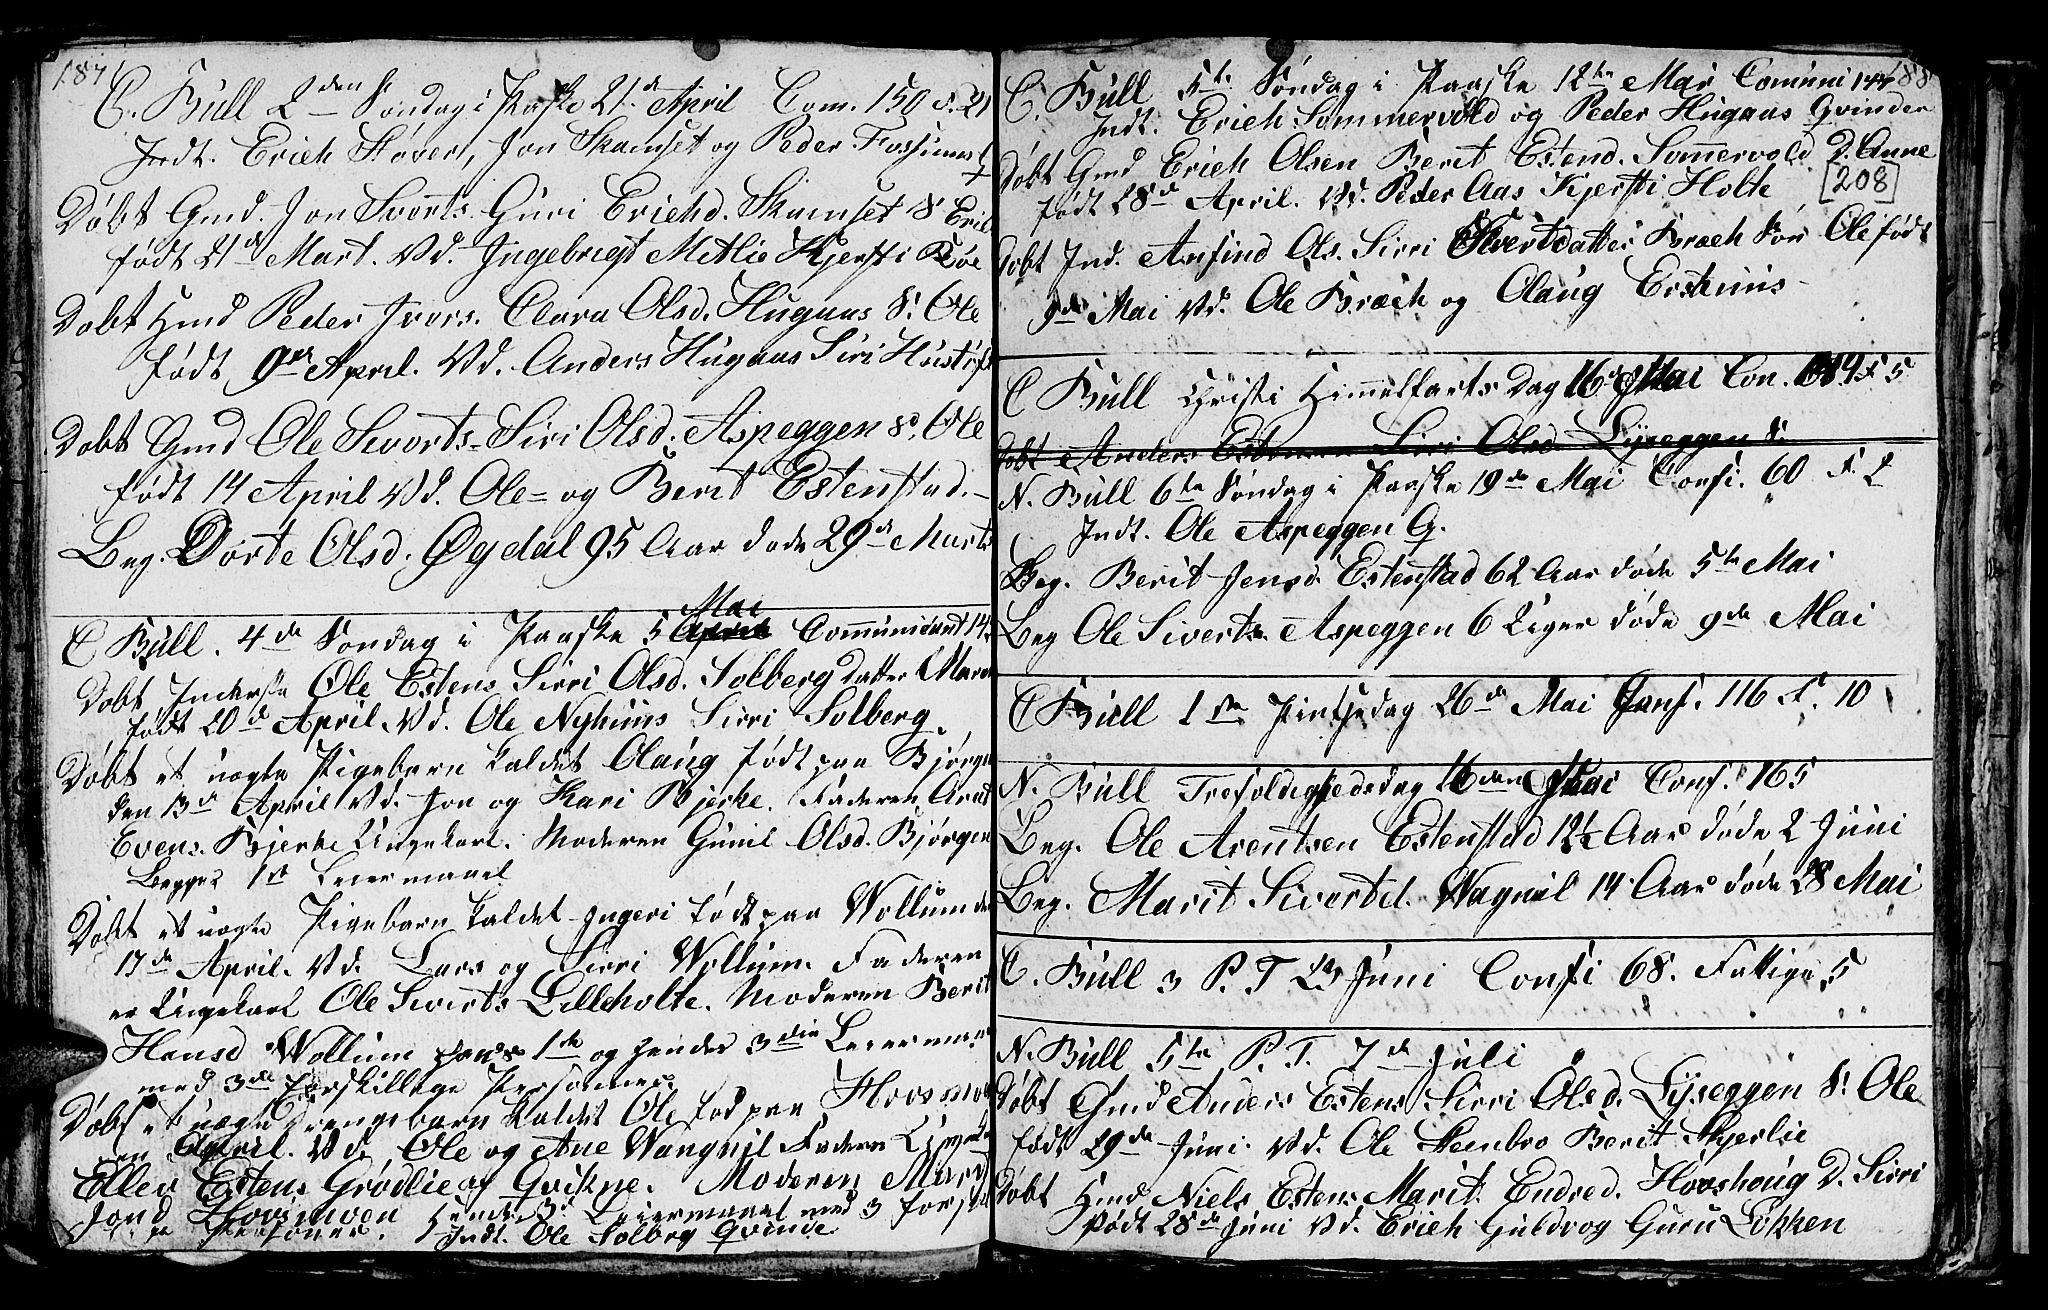 187
C. Bull 2den Søndag i Paaske 21de April Com. 150 F. 21
Indt. Erich Støver, Jon Skamset og Peder Fossum
Døbt Gmd. Jon Sivorts. Guri Erichd. Skamset S. Erich
født 21de Mart. Vd. Ingebrigt Mitlie Kjersti Røe
Døbt Hmd Peder Ivers. Clara Olsd. Hugaas S. Ole
født 9de April. Vd. Anders Hugaas Siri
Døbt Gmd Ole Sivorts. Siri Olsd. Aspeggen S. Ole
født 14 April Vd. Ole = og Berit Estenstad.
Beg. Dorte Olsd. Øgdal 95 Aar døde 29de Marts
C Bull. 4de Søndag i Paaske 5 Mai Communicant 14
Døbt Inderste Ole Estens Sirri Olsd. Solberg Datter Maren
født 20de April. Vd. Ole Nyhuus Sirri Solberg
Døbt et uægte Pigebarn kaldet Olaug født paa Bjørgen
den 13de April Vd. Jon og Kari Bjerke. Faderen Arnt
Evens. Bjerke Ungekarl. Moderen Gunil Olsd. Bjørgen
Begges 1ste Leiermaal
Døbt et uægte Pigebarn kaldet Ingeri født paa Wollum den
17de April. Vd. Lars og Sirri Wollum. Faderen
er Ungekarl Ole Siverts Lilleholte. Moderen Berit
Hansd Wollum hans 1ste og hendes 3die Leiermaal
med 3de forskillige Personner
Døbt et uægte Drengebarn kaldet Ole fød paa Hovsmoen
April. Vd. Ole og Ane Wangnil Faderen Ungekarl
Ellev Estens Grødlie af Qvikne. Moderen Marit
Jond Hovsmoen Hendes 3 Leiermaal med 3 forskil
Personer. Indt. Ole Solberg Qvinde
188
C. Bull 5te Søndag i Paaske 12te Mai Comuni 144
Indt. Erich Sommervold og Peder Hugaas Qvinder
Døbt Gmd Erich Olsen Berit Estend. Somervold D. Anne
[208]
født 28de April. Vd. Peder Aas Kjersti Holte
Døbt Ind. Anfind Ols. Sirri Sivertdatter Bræch Søn Ole født
9de Mai Vd. Ole Bræch og Olaug Ersthuus
C Bull Christi Himmelfarts Dag 16de Mai Con. 114 F 5
Døbt Anders Estensen Sirri Olsd Lyseggen S.
N. Bull 6te Søndag i Paaske 19de Mai Confi. 60 F. 2
Indt. Ole Aspeggen Q.
Beg. Berit Jensd. Estenstad 62 Aar døde 5te Mai
Beg Ole Siverts. Aspeggen 6 Uger døde 9de Mai
C Bull 1ste Pintsedag 26de Mai Conf. 116 F. 10
N. Bull Trefoldighedsdag Conf. 165
Beg. Ole Arentsen Estenstad 12½ Aar døde 2 Juni
Beg. Marit Sivertd. Wagnil 14 Aar døde 28 Mai
C. Bull 3 P. T 23 Juni Confi 68. Fattige 5
N. Bull 5te P. T. 7de Juli
Døbt Gmd Anders Estens Sirri Olsd. Lyseggen S. Ole
født 29de Juni. Vd. Ole Steenbro Berit Kjerlie
Døbt Hmd Niels Estens Marit. Endred. Hovshoug D. Sirri
født 28de Juni Vd. Erich Guldvog Guru Løkken